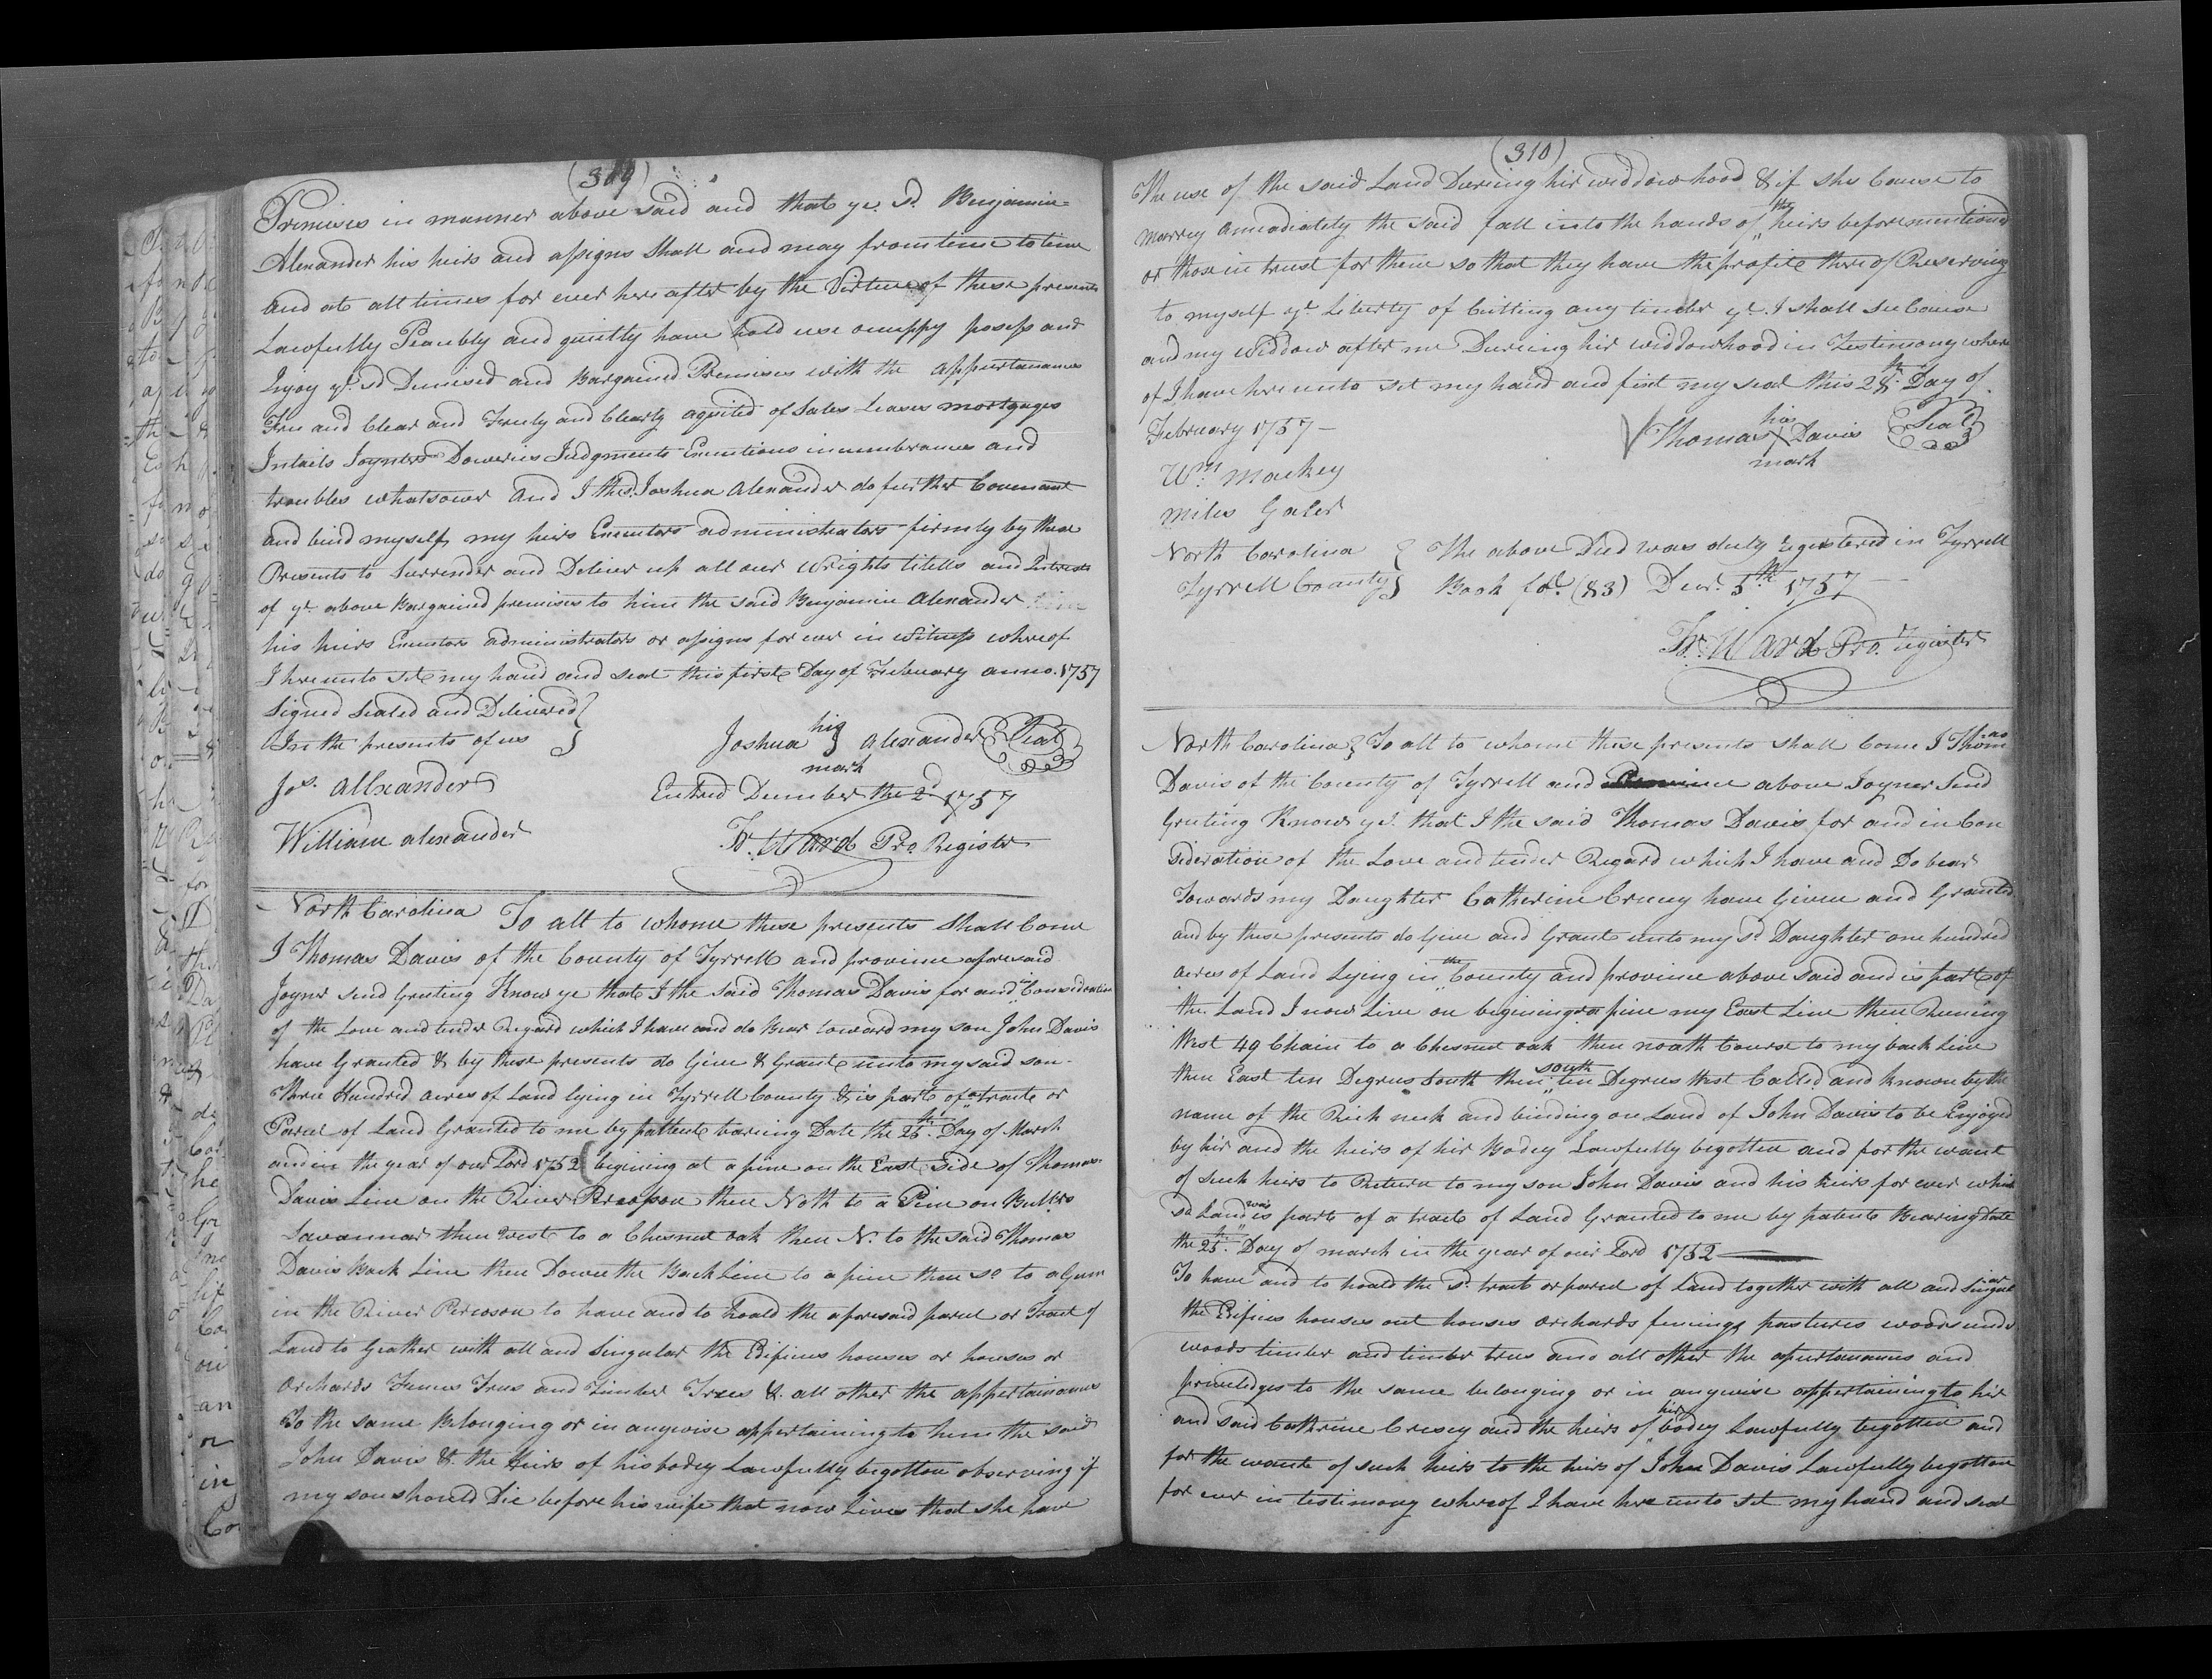 (309)
Premises in manner above said and that ye. sd. Benjamin
Alexander his heirs and assigns Shall and may from time to time
and at all times for ever here after by the Virtue of these presents
Lawfully Peaubly and quietly have hold use ocuppy posess and
Injoy ye. sd Demised and Bargained Premises with the appurtanances
Free and Clear and Freely and Clearly aquited of Sales Leases mortgages
Intails Joynters Doweries Judgments Executions incumbrances and
troubles whatsoever And I the sd. Joshua Alexander do further Covenant
and bind myself my heirs Executors administrators firmly by these
Presents to Surrender and Deliver up all our Wrights titells and Intrests
of ye. above Bargained premises to him the said Benjamin Alexander
his heirs Executors administrators or assigns for ever in Witness whereof
I hereunto Set my hand and seal this first Day of February anno. 1757
Signed Sealed and Delivered
In the presents of us
Joshua his mark Alexander Seal
Jos. Allxander
William alexander
Entred December the 2d 1757
Tr. Ward Pro Register
North Carolina To all to whome these presents Shall Come
I Thomas Davis of the County of Tyrrell and province aforesaid
Joyner send Greeting Know ye that I the said Thomas Davis for and in Consideration
of the Love and tender Regard which I have and do Bear toward my son John Davis
have Granted & by these presents do Give & Grant unto my said son
Three Hundred acres of Land lying in Tyrrell County & is part of a tract or
Parcel of Land Granted to me by pattent baring Date the 25th. Day of March
and in the year of our Lord 1752 begining at a pine on the East Side of Thomas
Davis Line on the River then Noth to a Pine on Butlrs
Savannar then West to a Chesnut oak then N. to the said Thomas
Davis Back Line then Down the Back Line to a pine then So to a Gum
in the River to have and to hoald the aforesaid parcel or Tract of
Land to Geather with all and Singular the Edifices houses or houses or
Orchards Fences Trees and Timber Trees &. all other the appertainances
to the same Belonging or in anywise appertaining to him the said
John Davis &. the heirs of his bodey Lawfully begotten observing if
my son should Die before his wife that now Lives that she have
(310)
The use of the said Land During hir widdowhood & if she Cause to
marrey ameadiately the said fall into the hands of the heirs beforementioned
or those in trust for them so that they have the profits there of Reserving
to myself ye Liberty of Cutting any timber yt. I shall See Cause
and my Widdow after me During hir widdowhood in Testimony where
of I have hereunto set my hand and fixt my seal this 28th. Day of
February 1757
Thomas his mark Davis Seal
Wm. Mackey
Miles Galer
North Carolina
Tyrrell County
The above Deed was duly registered in Tyrrell
Book fol. (83) Decr. 5th 1757
Tr. Ward Pro. register
North Carolina To all to whome these presents shall Come I Thomas
Davis of the County of Tyrrell and above Joyner Send
Greeting Know ye. that I the said Thomas Davis for and in Con
sideration of the Love and tender Regard which I have and Do bear
Towards my Daughter Catherine Crecey have Given and Granted
and by these presents do Give and Grant unto my sd Daughter one hundred
acres of Land Lying in the County and province above said and is part of
the Land I now Live on begining at a pine my East Line then Runing
West 49 Chain to a Chesnut oak then noath Course to my back Line
then East ten Degrees South then south ten Degrees West Called and known by the
name of the Rich neck and binding on Land of John Davis to be Enjoyed
by hir and the heirs of hir Bodey Lawfully begotten and for the want
of such heirs to Return to my son John Davis and his heirs for ever which
sd Land was is part of a tract of Land Granted to me by patent Bearing Date
the 25th. Day of march in the year of our Lord 1752
To have and to hoald the sd. tract or parcel of Land together with all and Singular
the Edifices houses out houses orchards fencings pastures woods unde
woods timber and timber trees and all other the apurtanances and
priviledges to the same belonging or in anywise appertaining to hir
and said Cathrine Crecey and the heirs of hir bodey Lawfully begotten and
for the wante of such heirs to the heirs of John Davis Lawfully begotten
for ever in testimony whereof I have here unto set my hand and seal